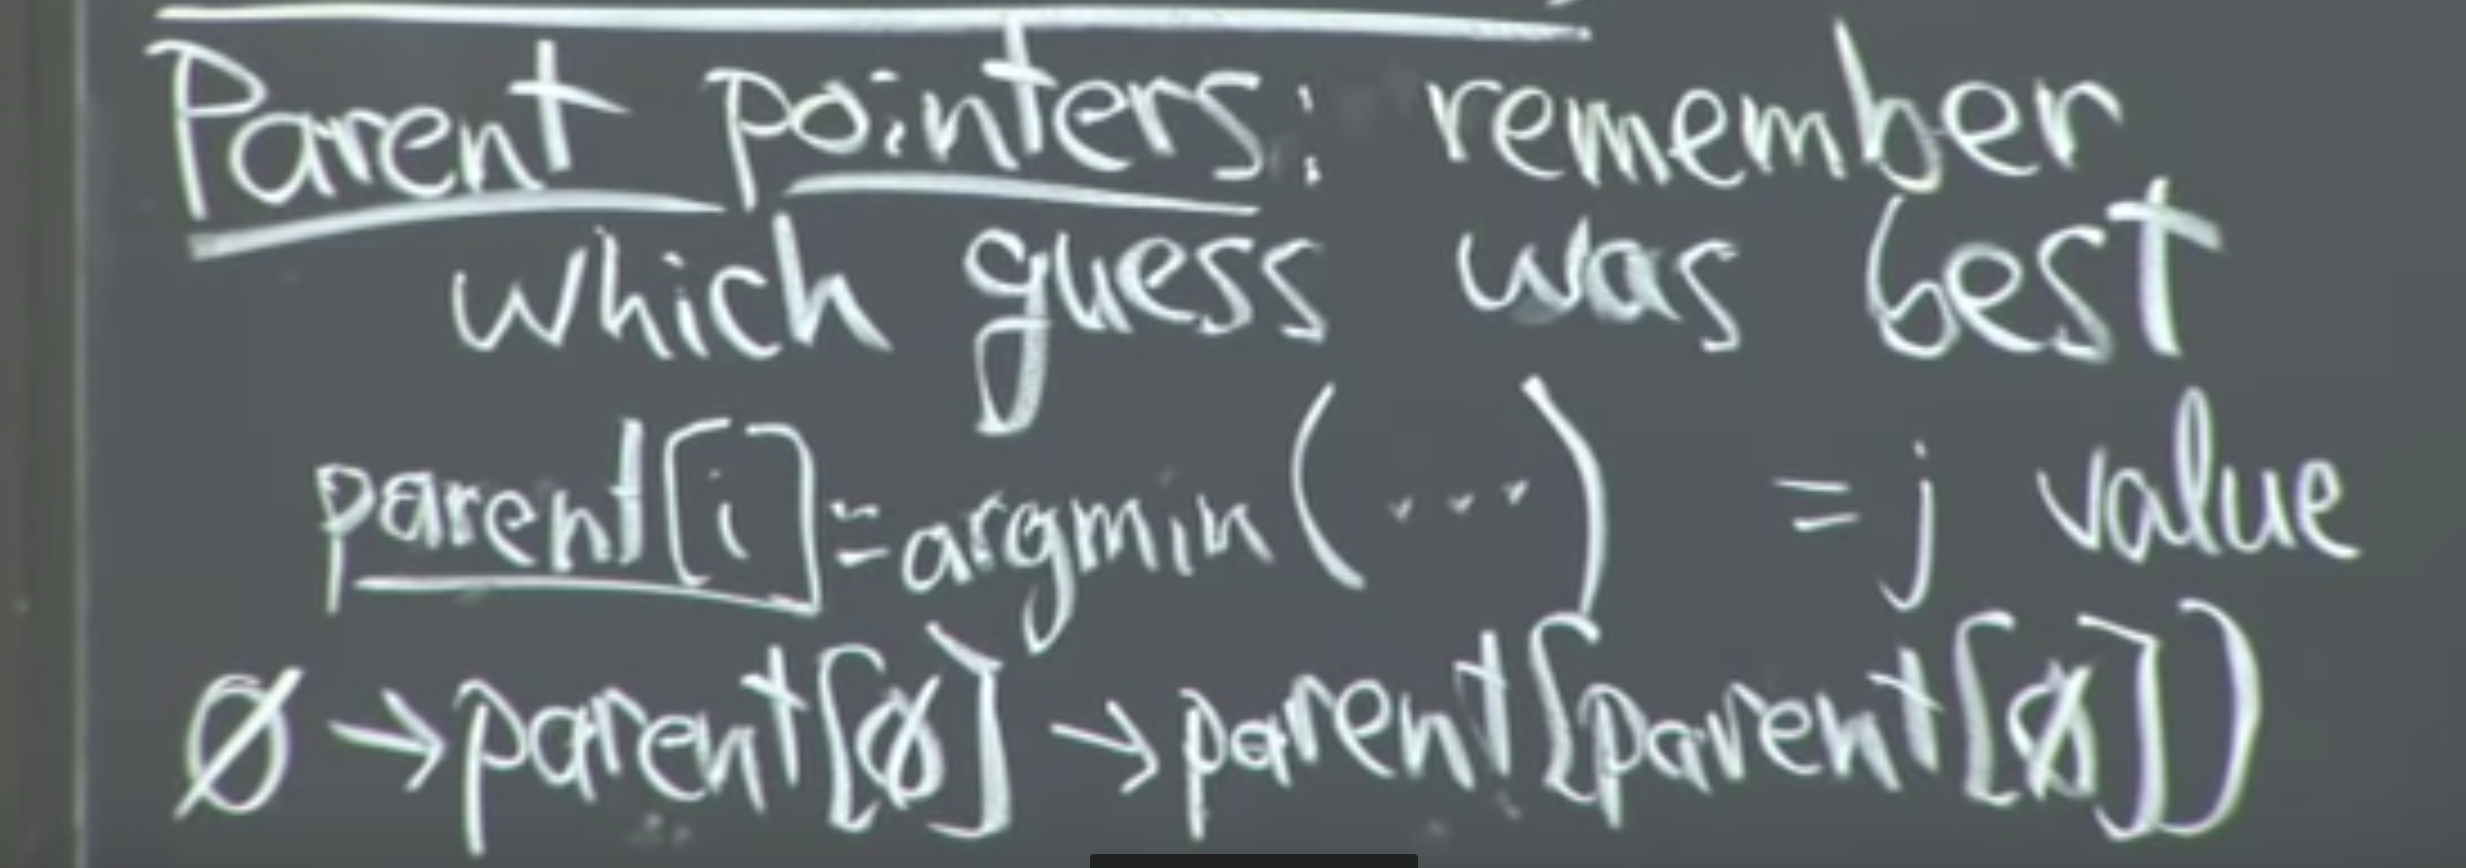 Parent pointers: remember
which guess was best
parent[i]=argmin(...) = j value
Ø→parent[Ø]→parent[parent[Ø])